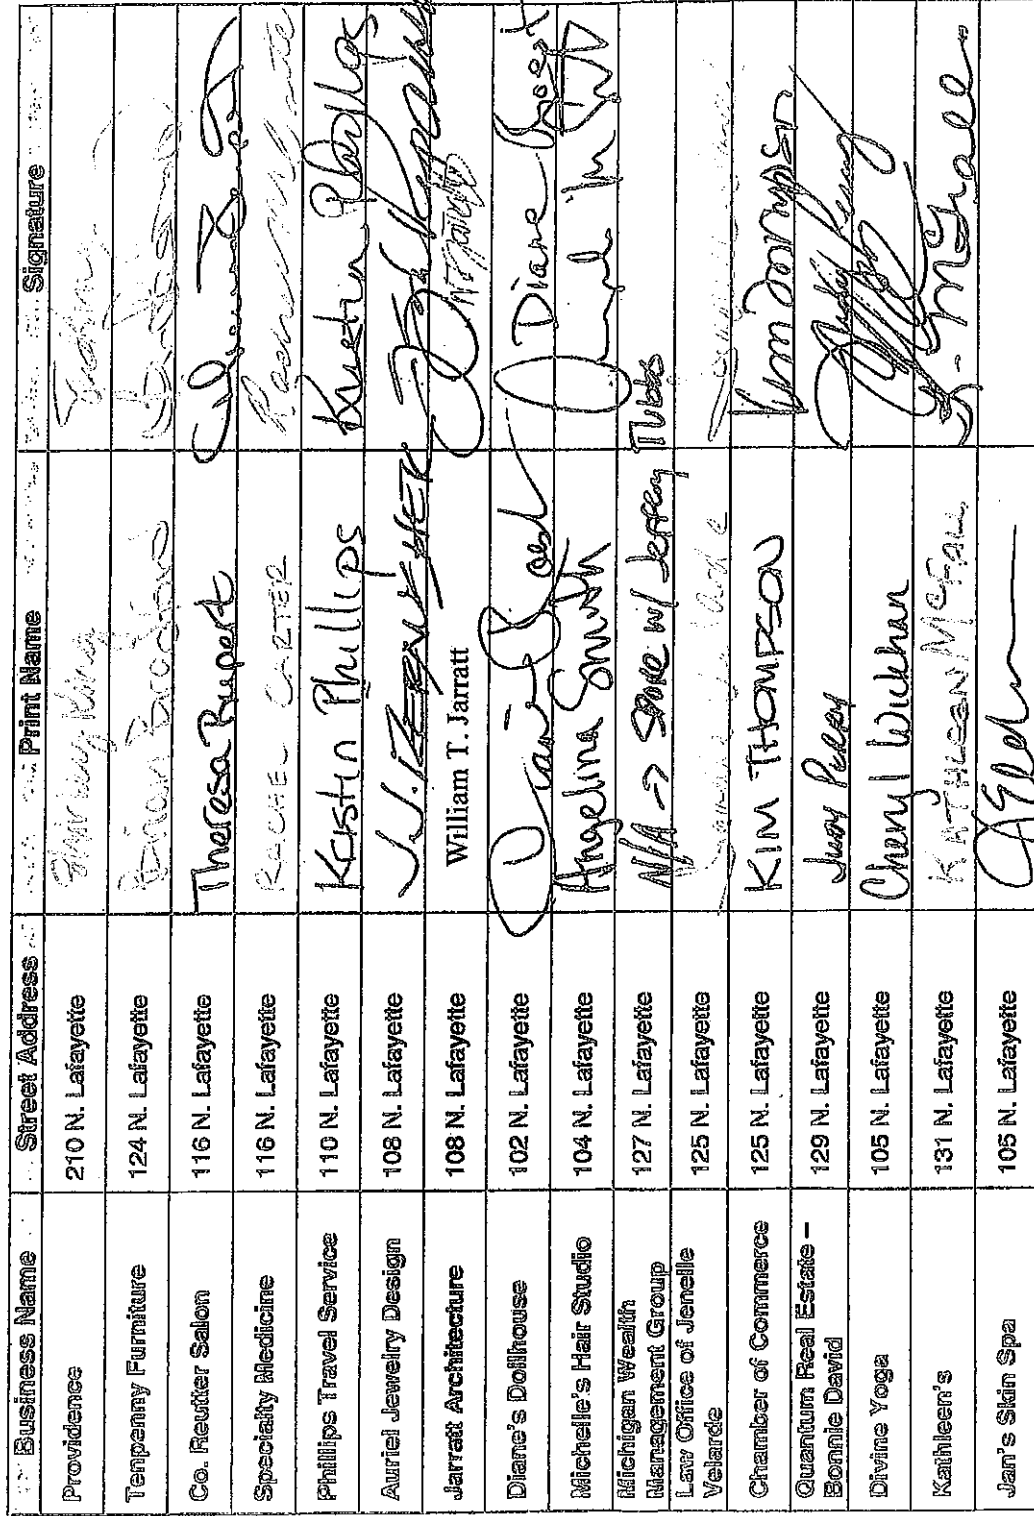 Business Name Street Address Print Name Signature
Providence 210 N. Lafayette
Tenpenny Furniture 124 N. Lafayette Brian
Co. Reutter Salon 116 N. Lafayette Theresa Rupert
Specialty Medicine 116 N. Lafayette RACHEL CARTER
Phillips Travel Service 110 N. Lafayette Kristin Phillips Kristin Phillips
Auriel Jewelry Design 108 N. Lafayette
Jarratt Architecture 108 N. Lafayette William T. Jarratt
Diane's Dollhouse 102 N. Lafayette Diane
Michelle's Hair Studio 104 N. Lafayette Angelina Smith
Michigan Wealth
Management Group 127 N. Lafayette N/A -> Spoke w/ Jeffrey Tubbs
Law Office of Jenelle
Velarde 125 N. Lafayette
Chamber of Commerce 125 N. Lafayette KIM THOMPSON Kim Thompson
Quantum Real Estate –
Bonnie David 129 N. Lafayette
Divine Yoga 105 N. Lafayette Cheryl Wickham
Kathleen's 131 N. Lafayette KATHLEEN McFALL
Jan's Skin Spa 105 N. Lafayette